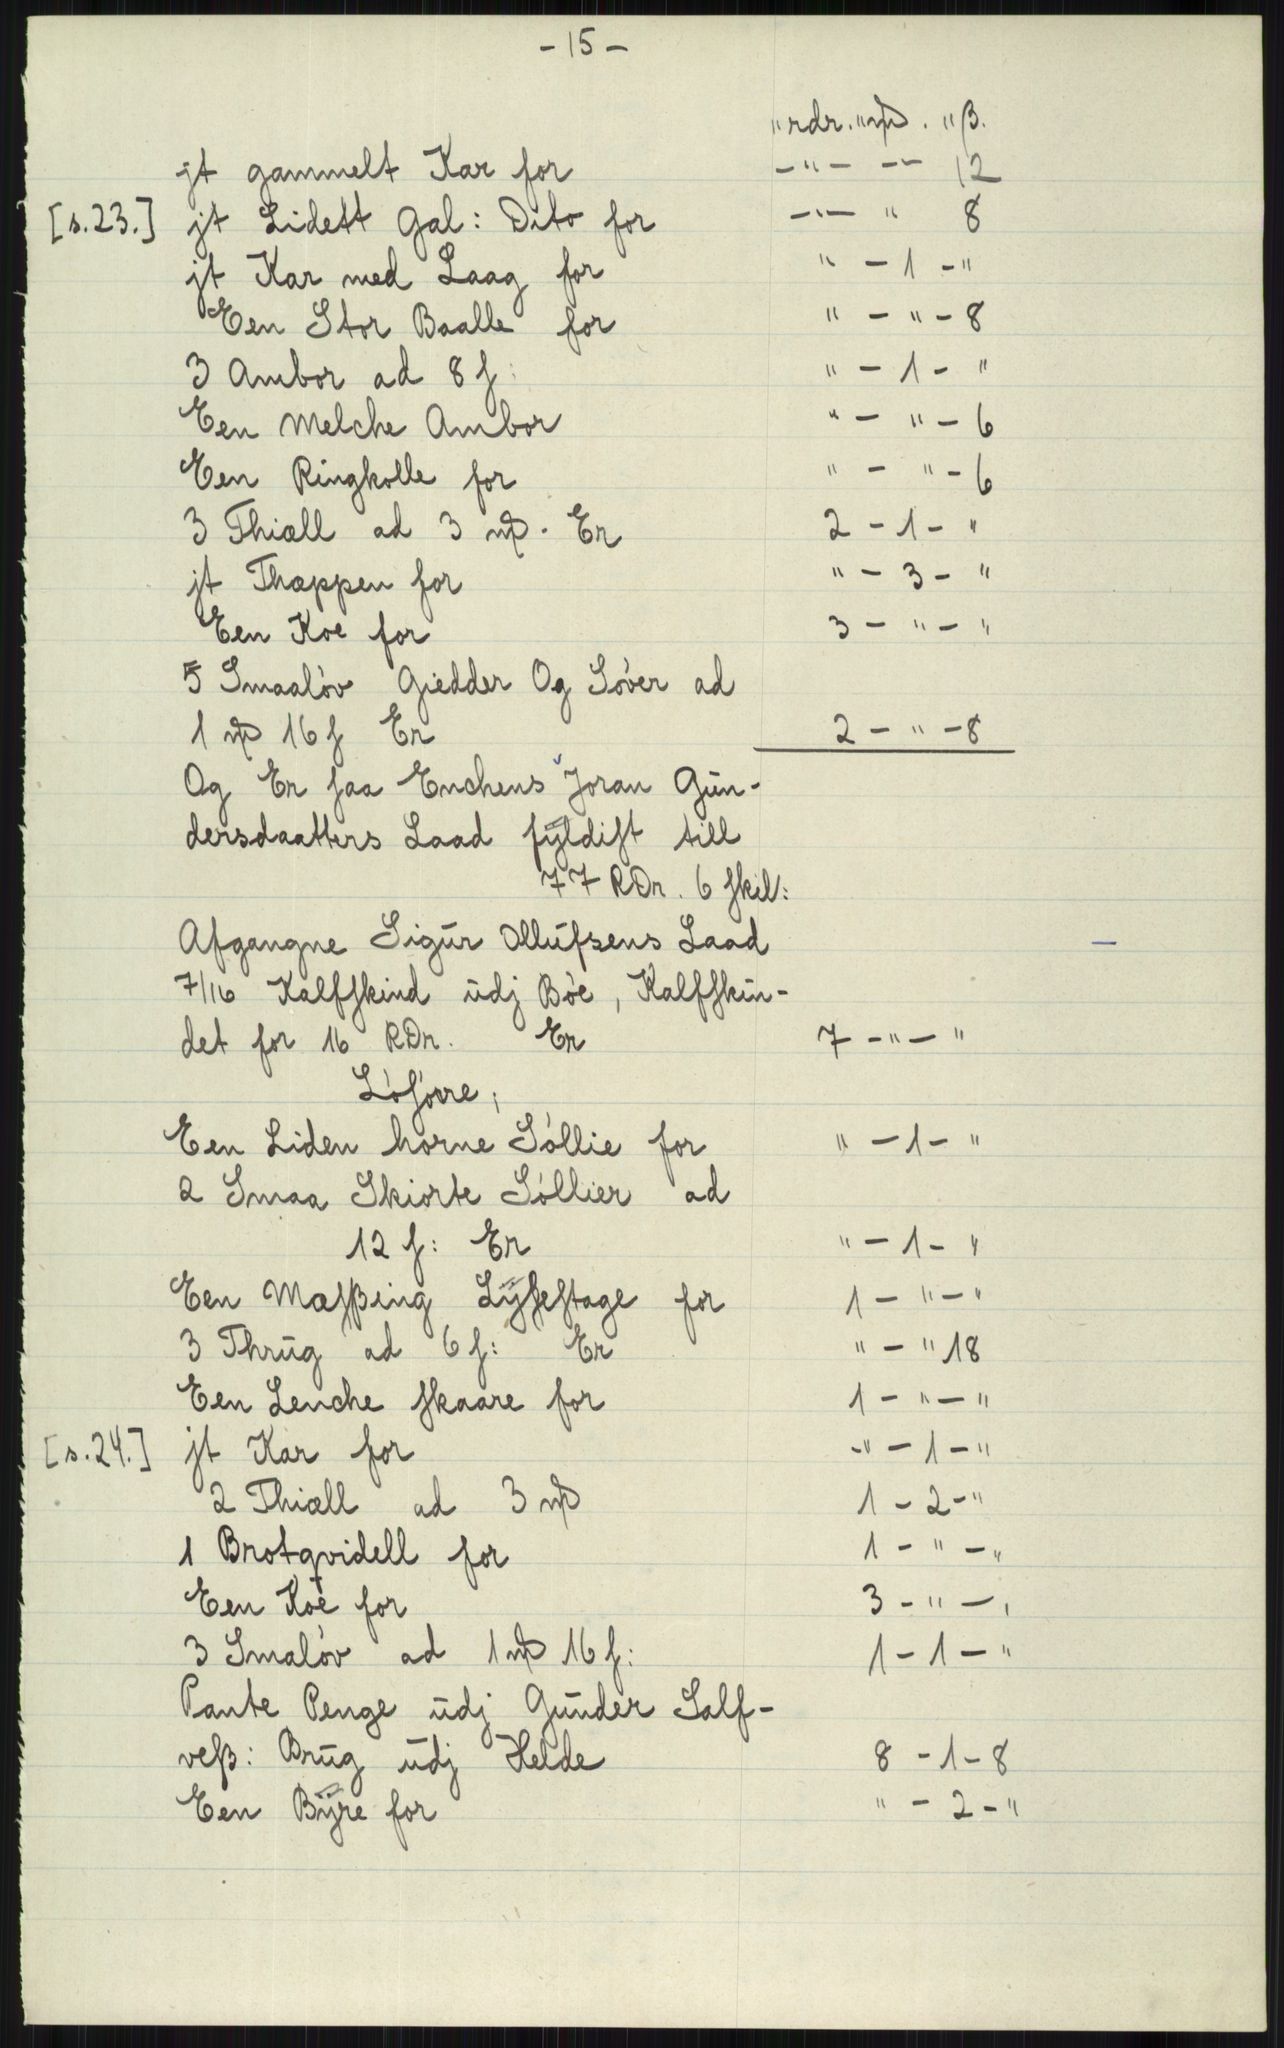 - 15 -
" rdr. " mp . " β.
jt gammelt Kar for - " - - - 12
[s. 23.] jt Lidett Gal: Dito for - " - " 8
jt Kar med Laag for " - 1 - "
Een Stor Baalle for " - " - 8
3 Ambor ad 8 ſ: " - 1 - "
Een Melche Ambor " - " - 6
Een Ringkolle for " - " - 6
3 Thiæll ad 3 mp. Er 2 - 1 - "
jt Thæppen for " - 3 - "
Een Koe for 3 - " - "
5 Smaalóv Giedder Og Sóver ad
1 mp 16 ſ Er 2 - " - 8
Og Er ſaa Enchens Joran Gūn-
dersdaatters Laad fÿldiſt till
77 RDr. 6 ſkil:
Afgangne Sigūr Ollūfsens Laad
7/16 Kalfſkind ūdj Bóe, Kalfſkin-
det for 16 RDr. Er 7 - " - "
Lóſóvre,
Een Liden horne Sóllie for " - 1 - "
2 Smaa Skiorte Sóllier ad
12 ſ: Er " - 1 - "
Een Mæſβing Lÿſeſtage for 1 - " - "
3 Thrūg ad 6 ſ: Er " - " 18
Een Lenche ſkaare for 1 - " - "
[s. 24.] jt Kar for " - 1 - "
2 Thiæll ad 3 mp 1 - 2 - "
1 Brotqvidell for 1 - " - "
Een Koe for 3 - " - "
3 Smalóv ad 1 mp 16 ſ: 1 - 1 - "
Pante Penge ūdj Gūnder Salf-
veβ: Brūg ūdj Helde 8 - 1 - 8
Een Bÿre for " - 2 - "